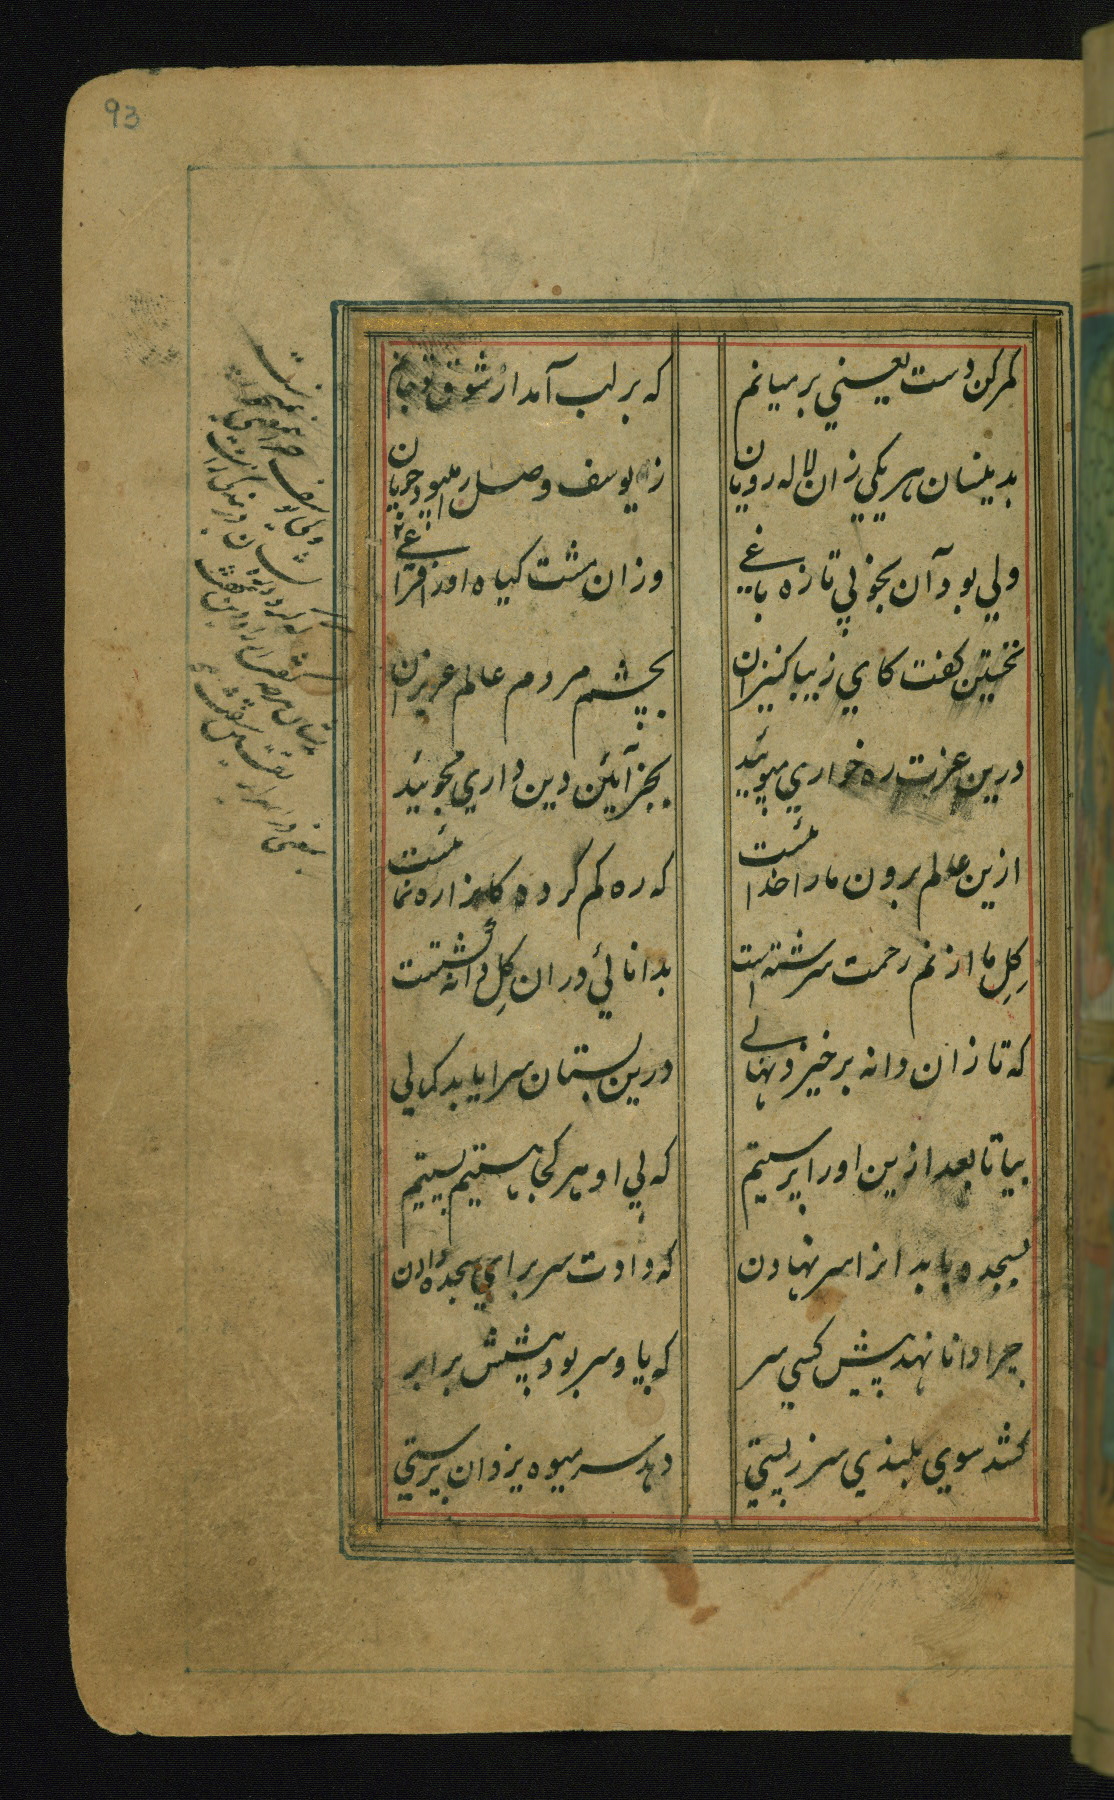 93
کمر کن دست یعنی بر میانم
که بر لب آمد از شوق تو جانم
بدینسان هر یکی زان لاله رویان
ز یوسف وصل را میبود جویان
ولی بود آن بخوبی تازه باغی
وزان مشت کیاه اورا فراغی
نخستین کفت کای زیبا کنیزان
بچشم مردم عالم عزیزان
درین عزت ره خواری مپوئید
بجز آیئن دین داری مجوئید
ازین عالم برون ما را خدائست
که ره کم کرده کانرا ره نمائست
کِلِ ما از نم رحمت سرشته است
بدانائی دران کِل دانه کشتست
که تا زان دانه برخیزد نهالی
درین بستان سرا یابد کمالی
بیا تا بعد ازین اورا پرستیم
که بی او هر کجا هستیم پستیم
بسجده باید انرا سر نهادن
که دادت سر برای سجده دادن
چرا دانا نهد پیش کسی سر
که پا و سر بود پیشش برابر
کشد سوی بلندی سر ز پستی
دهد سر میوه یزدان پرستی